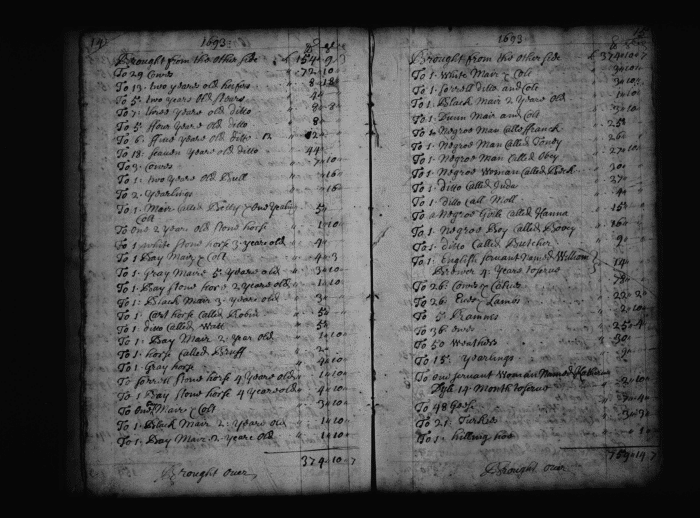 1693
Brought from the other side 154 9 3
To 29 Cowes 72 10
To 13 two years old heifers 8 18
To 5 two years old steers 4
To 7 three years old ditto 8 8
To 5 ffour years old ditto 8
To 6 ffive years old ditto 12
To 18 seaven years old ditto 44
To 3 Cowes 7 10
To 1 two years old Bull 16
To 2 yearlings 16
To 1 Mair Called Betty & one yearling
Colt 5
To one 2 years old stone horse 1 10
To 1 white stone horse 3 years old 4
To 1 Bay Mair & Colt 4
To 1 Gray Maire 5 years old 3 10
To 1 Bay stone horse 2 years old 1 10
To 1 Black Mair 3 years old 3
To 1 Cart horse Called Robin 5
To 1 ditto called Watt 5
To 1 Bay Mair 2 year old 1 10
To 1 horse Called Bruff 2
To 1 Gray horse 4 10
To sorrill stone horse 4 years old 1 10
To 1 Bay stone horse 4 years old 4 10
To one Mair & Colt 3 10
To 1 Black Mair 2 years old 1 10
To 1 Bay Mair 2 years old 1 10
374 10 7
Brought over
1693
Brought from the other side 374 10 7
To 1 White Mair & Colt 3 10
To 1 sorrell ditto and Colt 3 10
To 1 Black Mair 2 years old
To 1 Dunn Mair and Colt 3 10
To 1 Negroe Man Called ffranck 25
To 1 Negroe Man Called Toney 26
To 1 Negroe Man Called Obey 27 10
To 1 Negroe Woman Called 30
To 1 ditto Called Jude 27
To 1 ditto call Moll
To 1 Negroe Girle Called Hanna 15
To 1 Negroe Boy Called Boovy 16
To 1 ditto Called Butcher 9
To 1 English servant Named William
Brewer 4 Years to serve 14
To 26 Cowes & Calves 78
To 26 Ewes & Lambs 22 2
To 5 Ramms 2 10
To 36 ewes 25 4
To 50 Weathers 30
To 15 yearlings 9
To one servant Woman Named
14 Month to serve 2 10
To 48 Geese 7 4
To 21 Turkies 3 3
To 1 killing hog 1
759 19 7
Brought over